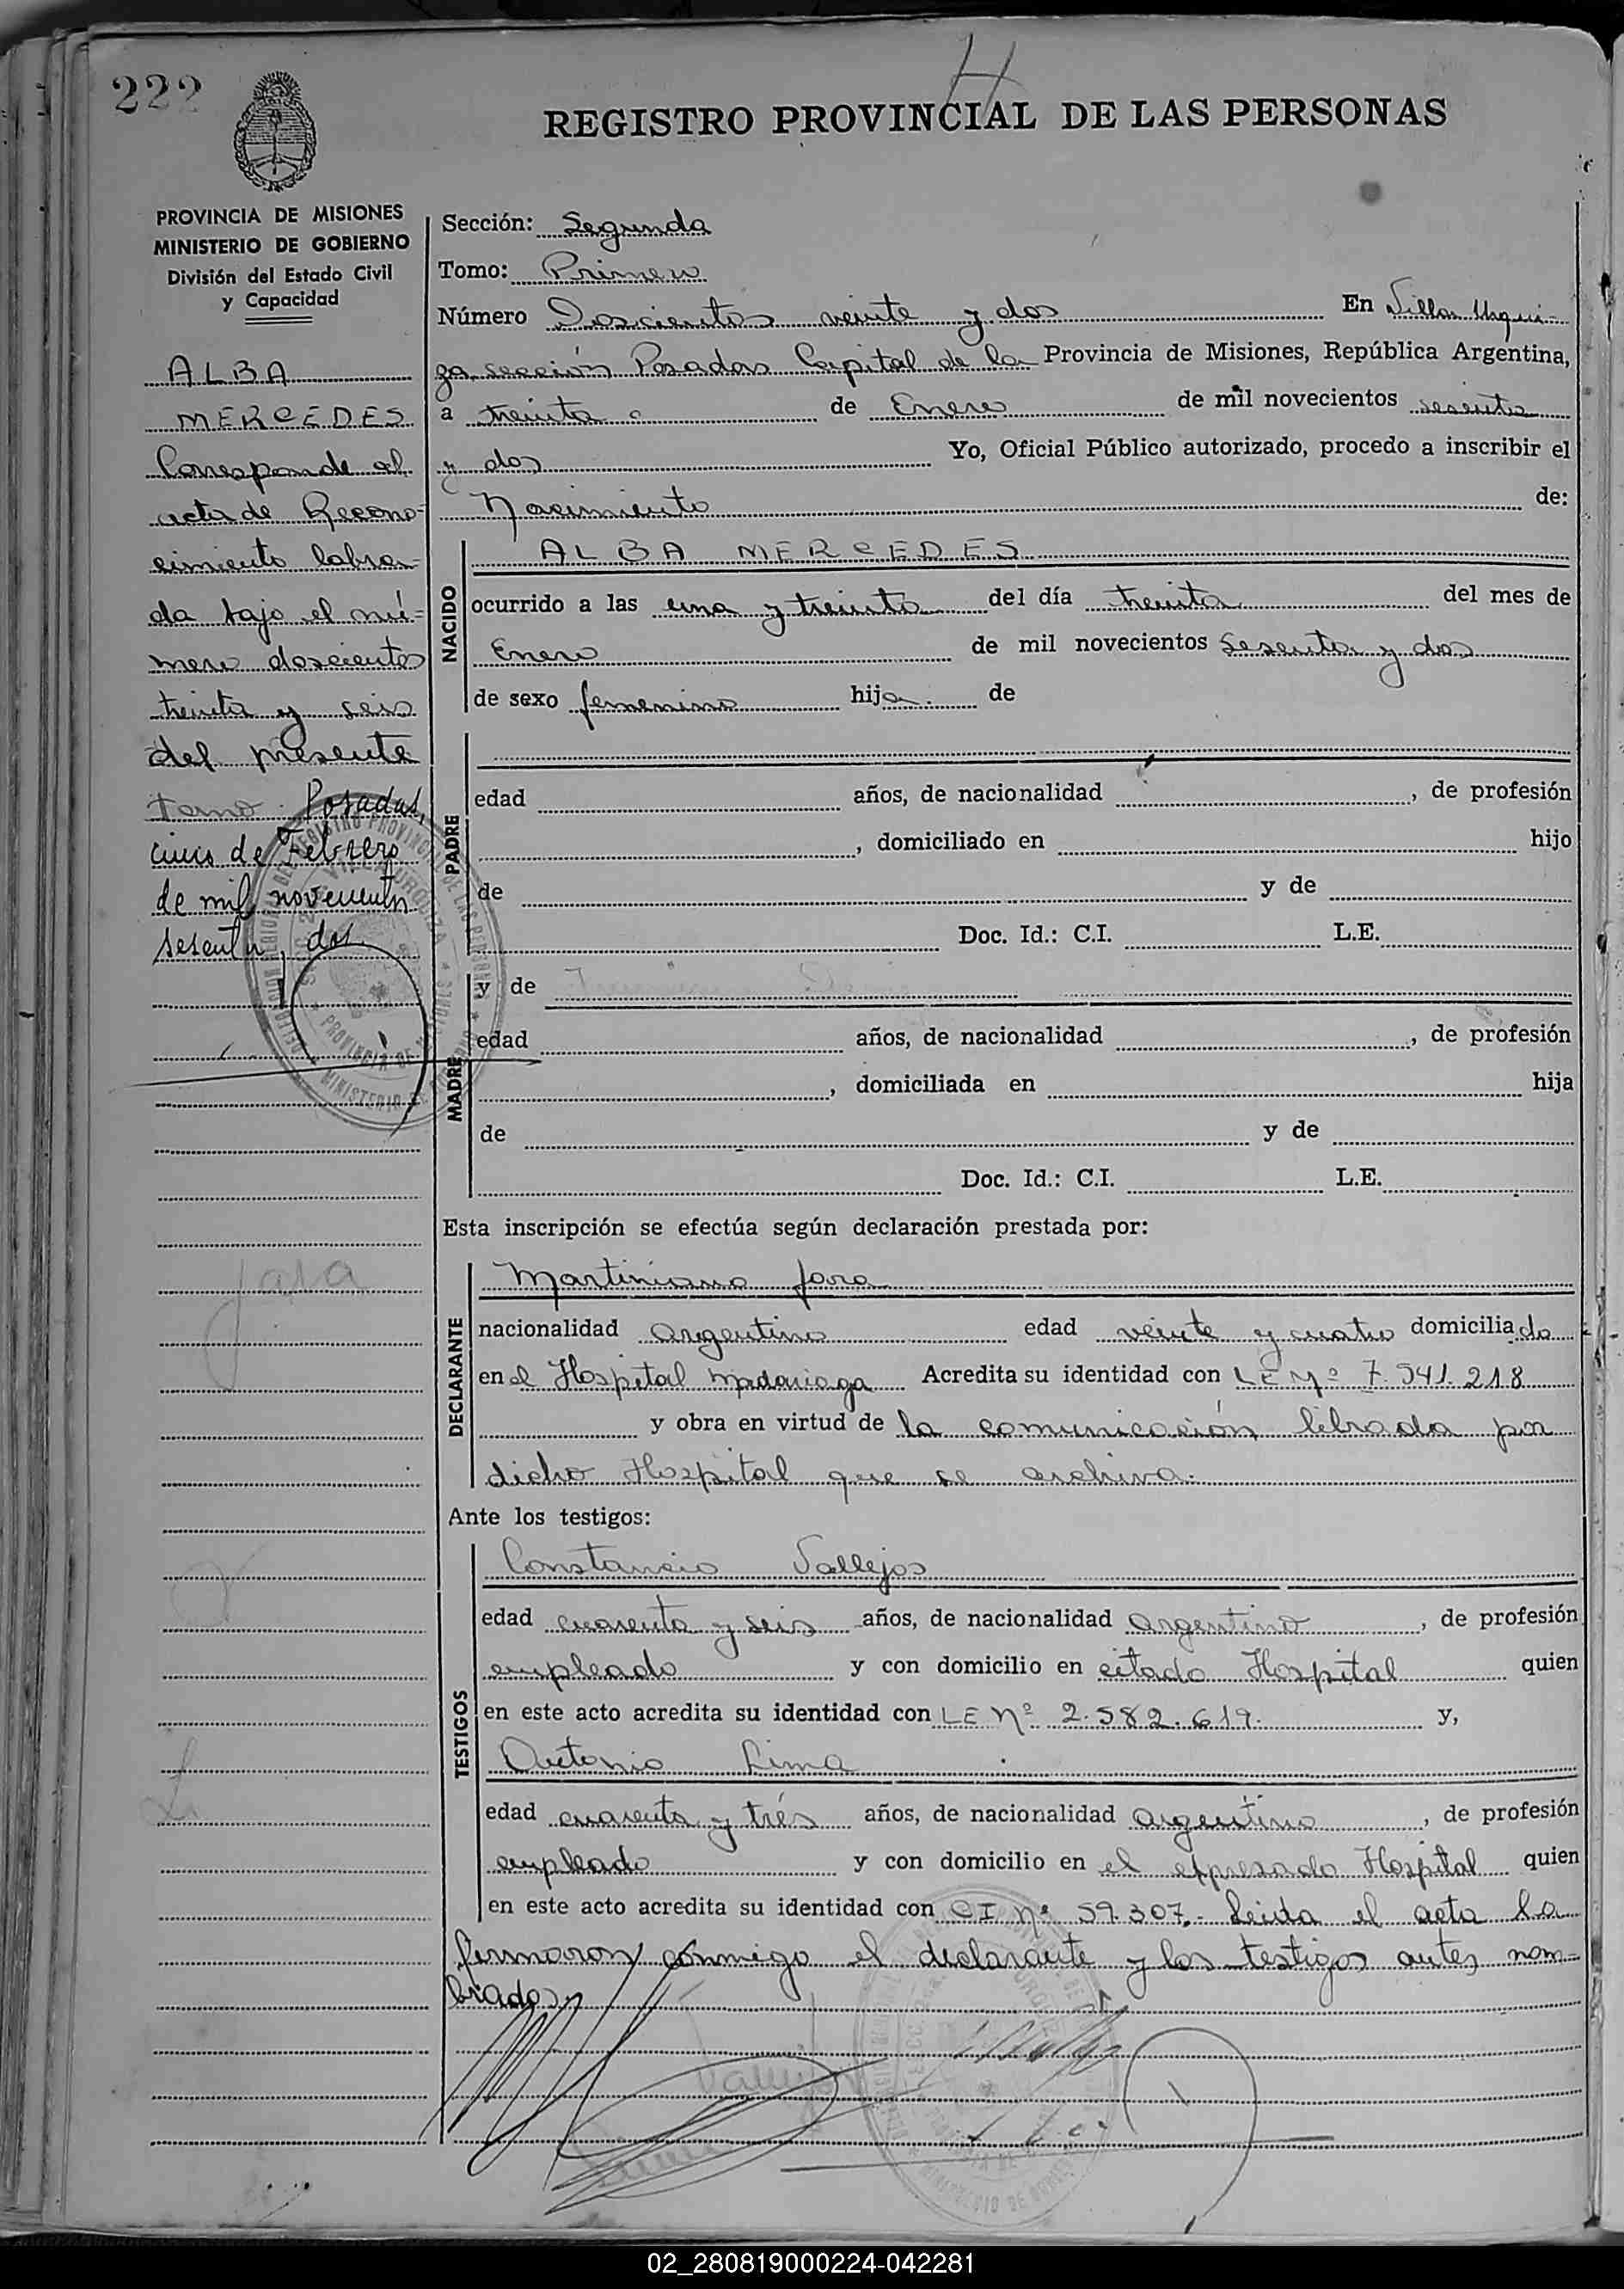 222
REGISTRO PROVINCIAL DE LAS PERSONAS
PROVINCIA DE MISIONES
MINISTERIO DE GOBIERNO
División del Estado Civil
y Capacidad
ALBA
MERCEDES
Corresponde al
acta de Recono-
cimiento labra-
da bajo el nú-
mero doscientos
treinta y seis
del presente
Tomo. Posadas,
cinco de Febrero
de mil novecientos
sesenta y dos
Sección: Segunda
Tomo: Primero
Número Doscientos veinte y dos En Villa Urqui-
za sección Posadas Capital de la Provincia de Misiones, República Argentina,
a treinta de Enero de mil novecientos sesenta
y dos Yo, Oficial Público autorizado, procedo a inscribir el
Nacimiento de:
NACIDO
ALBA MERCEDES
ocurrido a las una y treinta del día treinta del mes de
Enero de mil novecientos sesenta y dos
de sexo femenino hija de
PADRE
edad años, de nacionalidad , de profesión
, domiciliado en hijo
de y de
Doc. Id.: C.I. L.E.
MADRE
y de
edad años, de nacionalidad , de profesión
, domiciliada en hija
de y de
Doc. Id.: C.I. L.E.
Esta inscripción se efectúa según declaración prestada por:
Jara
DECLARANTE
Martiniano Jara
nacionalidad argentino edad veinte y cuatro domiciliado
en el Hospital Madariaga Acredita su identidad con LE Nº 7.541.218
y obra en virtud de la comunicación librada por
dicho Hospital que se archiva.
Ante los testigos:
TESTIGOS
Constancio Vallejos
edad cuarenta y seis años, de nacionalidad argentino , de profesión
empleado y con domicilio en citado Hospital quien
en este acto acredita su identidad con LE Nº 2.582.619. y,
Antonio Lima
edad cuarenta y trés años, de nacionalidad argentino , de profesión
empleado y con domicilio en el expresado Hospital quien
en este acto acredita su identidad con CI Nº 59.307.- Leida el acta la
firmaron conmigo el declarante y los testigos antes nom-
brados.
02_280819000224-042281